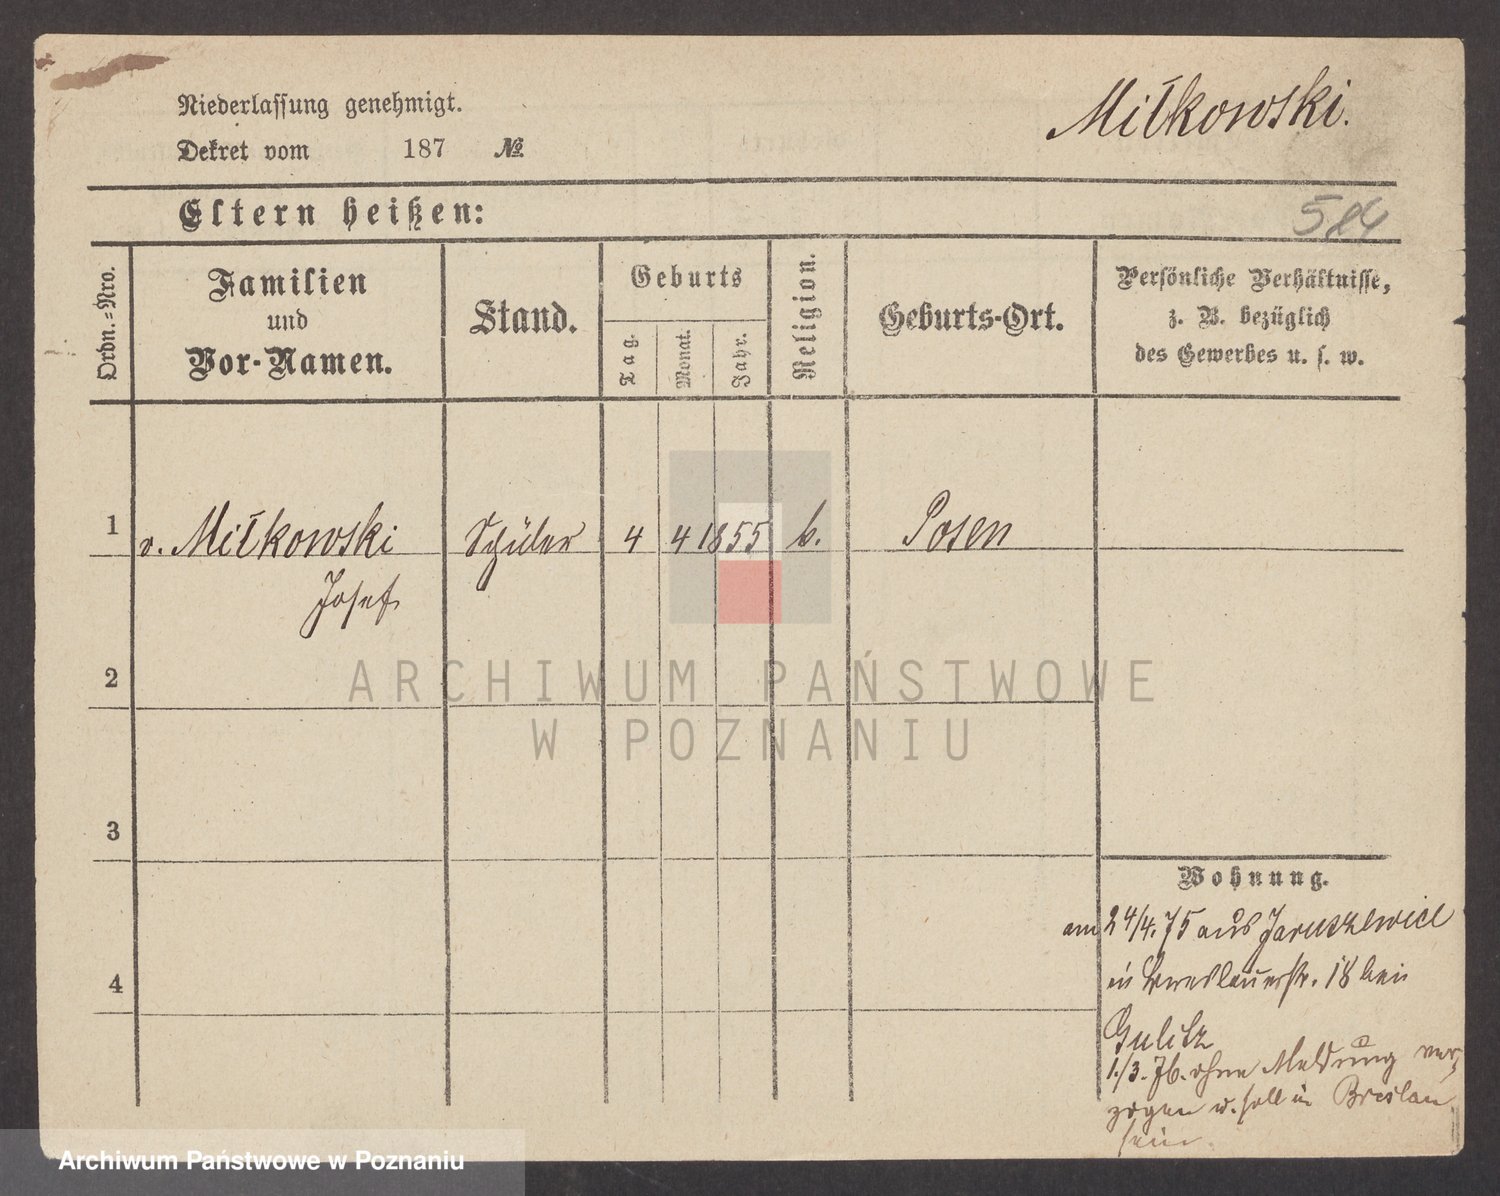 Niederlassung genehmigt.
Dekret vom 187 №
Miłkowski.
Eltern heißen:
584
Ordn.=Nro.
Familien
und
Vor-Namen.
Stand.
Geburts
Tag.
Monat.
Jahr.
Religion.
Geburts-Ort.
Persönliche Verhältnisse,
z. B. bezüglich
des Gewerbes u. s. w.
1 v. Miłkowski Schüler 4 4 1855 k. Posen
Josef
2
3
4
Wohnung.
am 24/4.75 aus Jaruszewice
in Breslauerstr. 18 bei
1./3. 76. ohne Meldung ver-
zogen u. soll in Breslau
sein.
ARCHIWUM PAŃSTWOWE
W POZNANIU
Archiwum Państwowe w Poznaniu